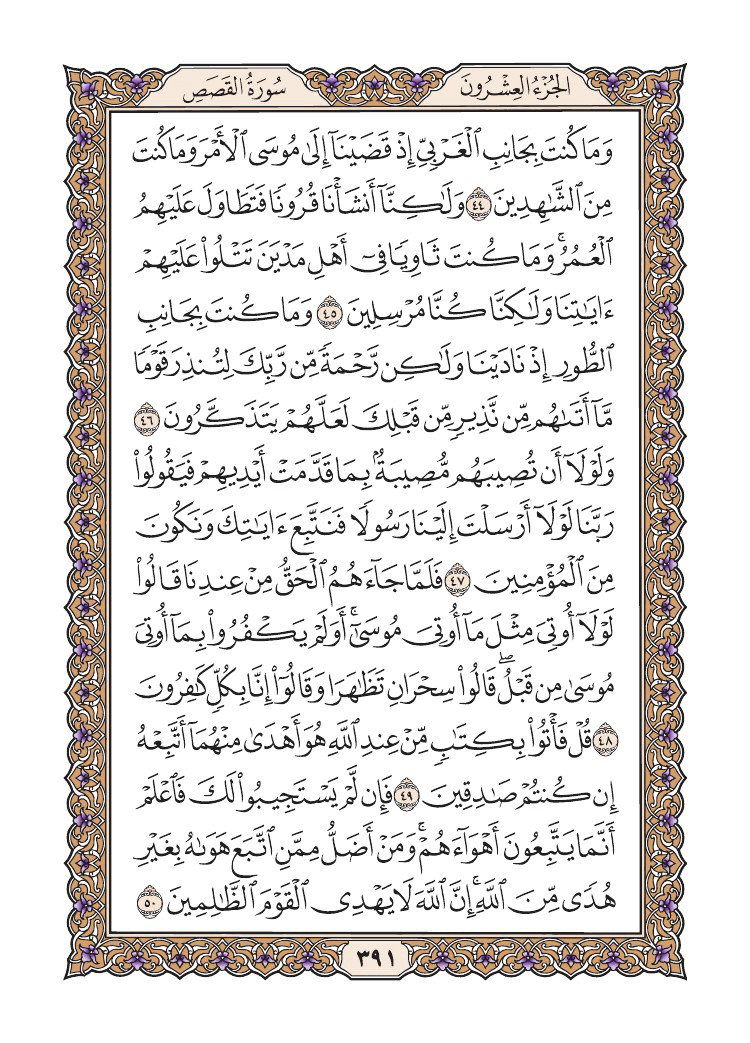 الجزء العشرون
سورة القصص
وَمَا كُنتَ بِجَانِبِ ٱلْغَرْبِيِّ إِذْ قَضَيْنَآ إِلَىٰ مُوسَى ٱلْأَمْرَ وَمَا كُنتَ
مِنَ ٱلشَّٰهِدِينَ ٤٤ وَلَٰكِنَّآ أَنشَأْنَا قُرُونًا فَتَطَاوَلَ عَلَيْهِمُ
ٱلْعُمُرُ ۚ وَمَا كُنتَ ثَاوِيًا فِىٓ أَهْلِ مَدْيَنَ تَتْلُوا۟ عَلَيْهِمْ
ءَايَٰتِنَا وَلَٰكِنَّا كُنَّا مُرْسِلِينَ ٤٥ وَمَا كُنتَ بِجَانِبِ
ٱلطُّورِ إِذْ نَادَيْنَا وَلَٰكِن رَّحْمَةً مِّن رَّبِّكَ لِتُنذِرَ قَوْمًا
مَّآ أَتَىٰهُم مِّن نَّذِيرٍ مِّن قَبْلِكَ لَعَلَّهُمْ يَتَذَكَّرُونَ ٤٦
وَلَوْلَآ أَن تُصِيبَهُم مُّصِيبَةٌۢ بِمَا قَدَّمَتْ أَيْدِيهِمْ فَيَقُولُوا۟
رَبَّنَا لَوْلَآ أَرْسَلْتَ إِلَيْنَا رَسُولًا فَنَتَّبِعَ ءَايَٰتِكَ وَنَكُونَ
مِنَ ٱلْمُؤْمِنِينَ ٤٧ فَلَمَّا جَآءَهُمُ ٱلْحَقُّ مِنْ عِندِنَا قَالُوا۟
لَوْلَآ أُوتِىَ مِثْلَ مَآ أُوتِىَ مُوسَىٰٓ ۚ أَوَلَمْ يَكْفُرُوا۟ بِمَآ أُوتِىَ
مُوسَىٰ مِن قَبْلُ ۖ قَالُوا۟ سِحْرَانِ تَظَٰهَرَا وَقَالُوٓا۟ إِنَّا بِكُلٍّ كَٰفِرُونَ
٤٨ قُلْ فَأْتُوا۟ بِكِتَٰبٍ مِّنْ عِندِ ٱللَّهِ هُوَ أَهْدَىٰ مِنْهُمَآ أَتَّبِعْهُ
إِن كُنتُمْ صَٰدِقِينَ ٤٩ فَإِن لَّمْ يَسْتَجِيبُوا۟ لَكَ فَٱعْلَمْ
أَنَّمَا يَتَّبِعُونَ أَهْوَآءَهُمْ ۚ وَمَنْ أَضَلُّ مِمَّنِ ٱتَّبَعَ هَوَىٰهُ بِغَيْرِ
هُدًى مِّنَ ٱللَّهِ ۚ إِنَّ ٱللَّهَ لَا يَهْدِى ٱلْقَوْمَ ٱلظَّٰلِمِينَ ٥٠
٣٩١